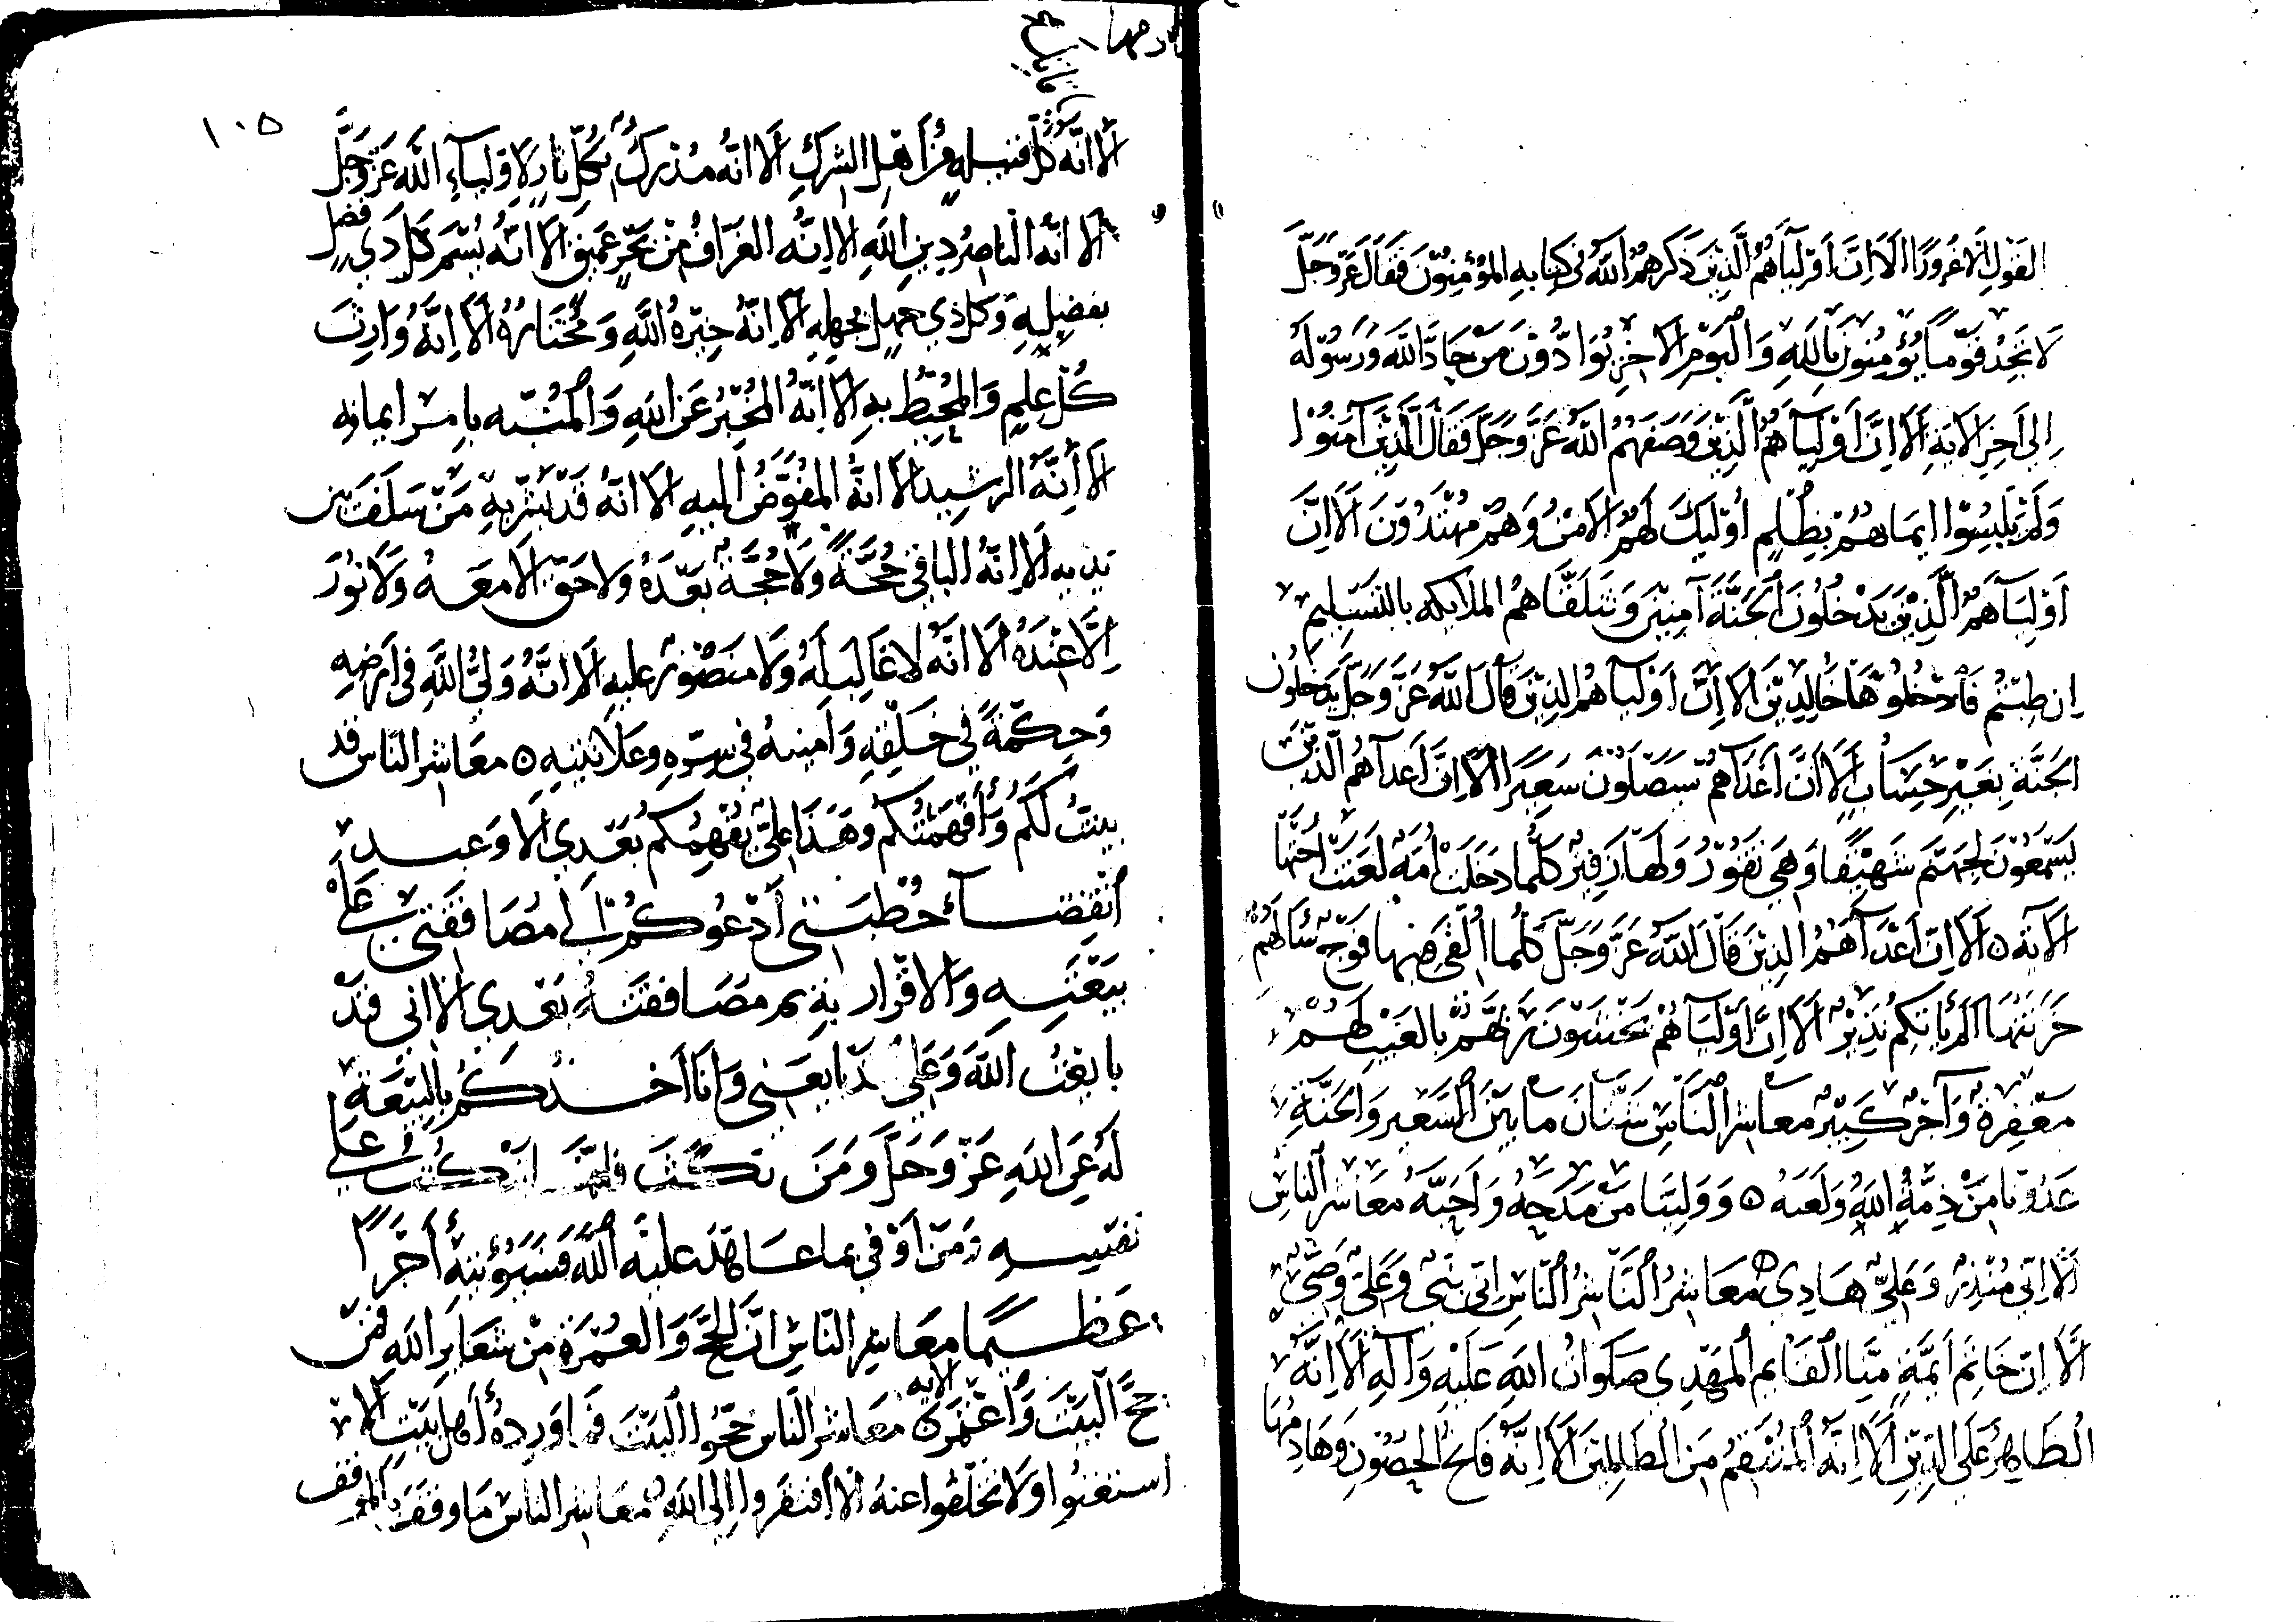 القول الا غرورا الا ان اولياهم الذين ذكرهم الله في كتابه المؤمنون فقال عز وجل
لا تجد قوما يؤمنون بالله واليوم الاخر يوادون من حاد الله ورسوله
الى اخر الاية الا ان اوليآهم الذين وصفهم الله عز وجل فقال الذين آمنوا
ولم يلبسوا ايمانهم بظلم اوليك لهم الامن وهم مهتدون الا ان
اوليآهم الذين يدخلون الجنة آمنين وتتلقاهم الملايكه بالتسليم
ان طبتم فادخلوها خالدين الا ان اوليآهم الذين قال الله عز وجل يدخلون
الجنة بغير حساب الا ان اعدآهم سيصلون سعيرا الا ان اعدآهم الذين
يسمعون لجهنم شهيقا وهي تفور ولها زفير كلما دخلت امة لعنت اختها
الآية ٥ الا ان اعدآهم الذين قال الله عز وجل كلما القي فيها فوج سألهم
خزنتها الم ياتكم نذير الا ان اوليآهم يخشون ربهم بالغيب لهم
مغفرة وآجر كبير معاشر الناس شتان ما بين السعير والجنة
عدونا من ذمه الله ولعنه ٥ وولينا من مدحه واحبه معاشر الناس
الا اني منذر وعلي هادي ٥ معاشر الناس اني نبي وعلي وصي
الا ان خاتم ايمة منا القايم المهدي صلوات الله عليه وآله الا انه
الظاهر على الدين الا انه المنتقم من الظالمين الا انه فاتح الحصون وهادمها
١٠٥
الا انه قاتل كل قبيله من أهل الشرك الا انه مدرك بكل ثار لاوليآء الله عز وجل
الا انه الناصر دين الله الا انه الغراف من بحر عميق الا انه يسم كل ذي فضل
بفضله وكل ذي جهل بجهله الا انه خيره الله ومختاره الا انه وارث
كل علم والمحيط به الا انه المخبر عن الله والمنبه بامر ايمانه
الا انه الرشيد الا انه المفوض اليه الا انه قد بشر به من سلف بين
يديه الا انه الباقي حجة ولا حجة بعده ولا حق الا معه ولا نور
الا عنده الا انه لا غالب له ولا منصور عليه الا انه ولي الله في ارضه
وحكمة في خلقه وامينه في سره وعلانيته ٥ معاشر الناس قد
بينت لكم وأفهمتكم وهذا علي يفهمكم بعدي الا وعند
انقضآء خطبتي أدعوكم الى مصافقتي على
بيعته والاقرار به ثم مصافقته بعدي الا اني قد
بايعت الله وعلي قد بايعني وانا اخذكم بالبيعة
له عن الله عز وجل ومن نكث فانما ينكث على
نفسه ومن اوفى بما عاهد عليه الله فسيؤتيه أجرا
عظيما معاشر الناس ان الحج والعمرة من شعاير الله فمن
حج البيت واعتمر الايه ٥ معاشر الناس حجوا البيت فما ورده أهل بيت الا
استغنوا ولا تخلفوا عنه الا افتقروا الى الله معاشر الناس ما وقف بالموقف